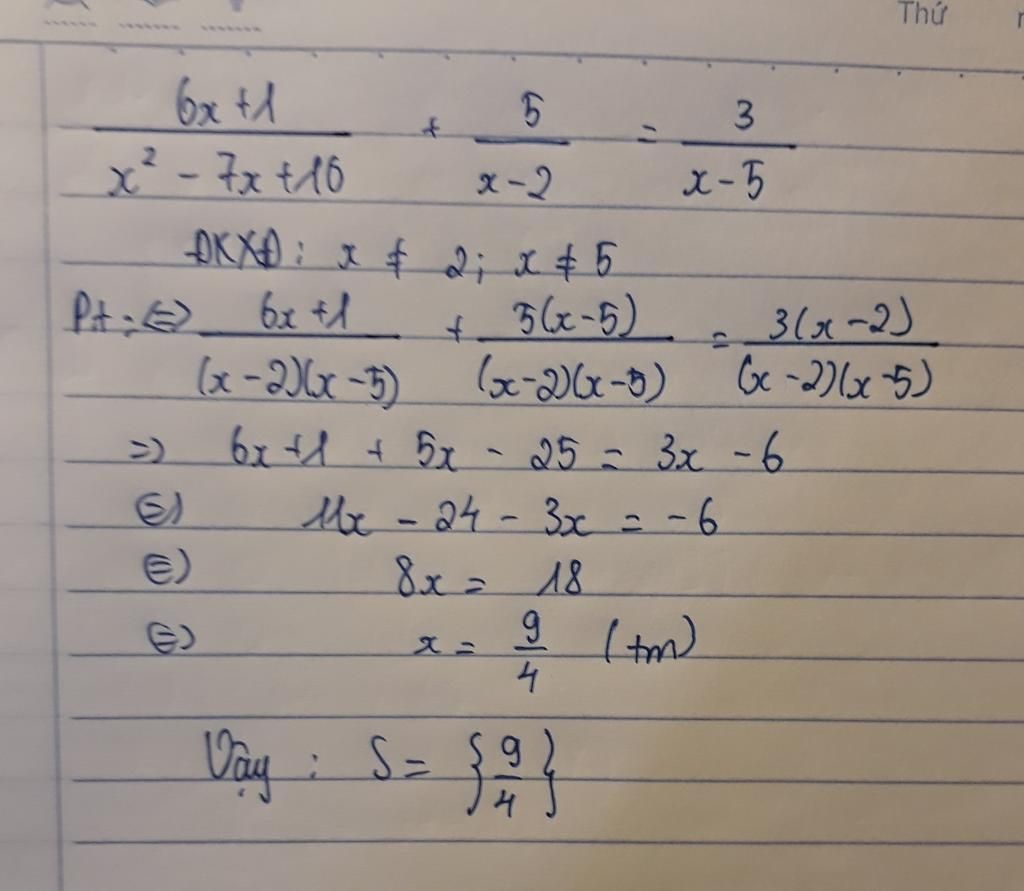 Thứ
6x+1/x² - 7x+10 + 5/x-2 = 3/x-5
ĐKXĐ: x ≠ 2; x ≠ 5
Pt: ⇔ 6x+1/(x-2)(x-5) + 5(x-5)/(x-2)(x-5) = 3(x-2)/(x-2)(x-5)
=> 6x+1 + 5x - 25 = 3x - 6
⇔ 11x - 24 - 3x = -6
⇔ 8x = 18
⇔ x = 9/4 (tm)
Vậy : S = {9/4}